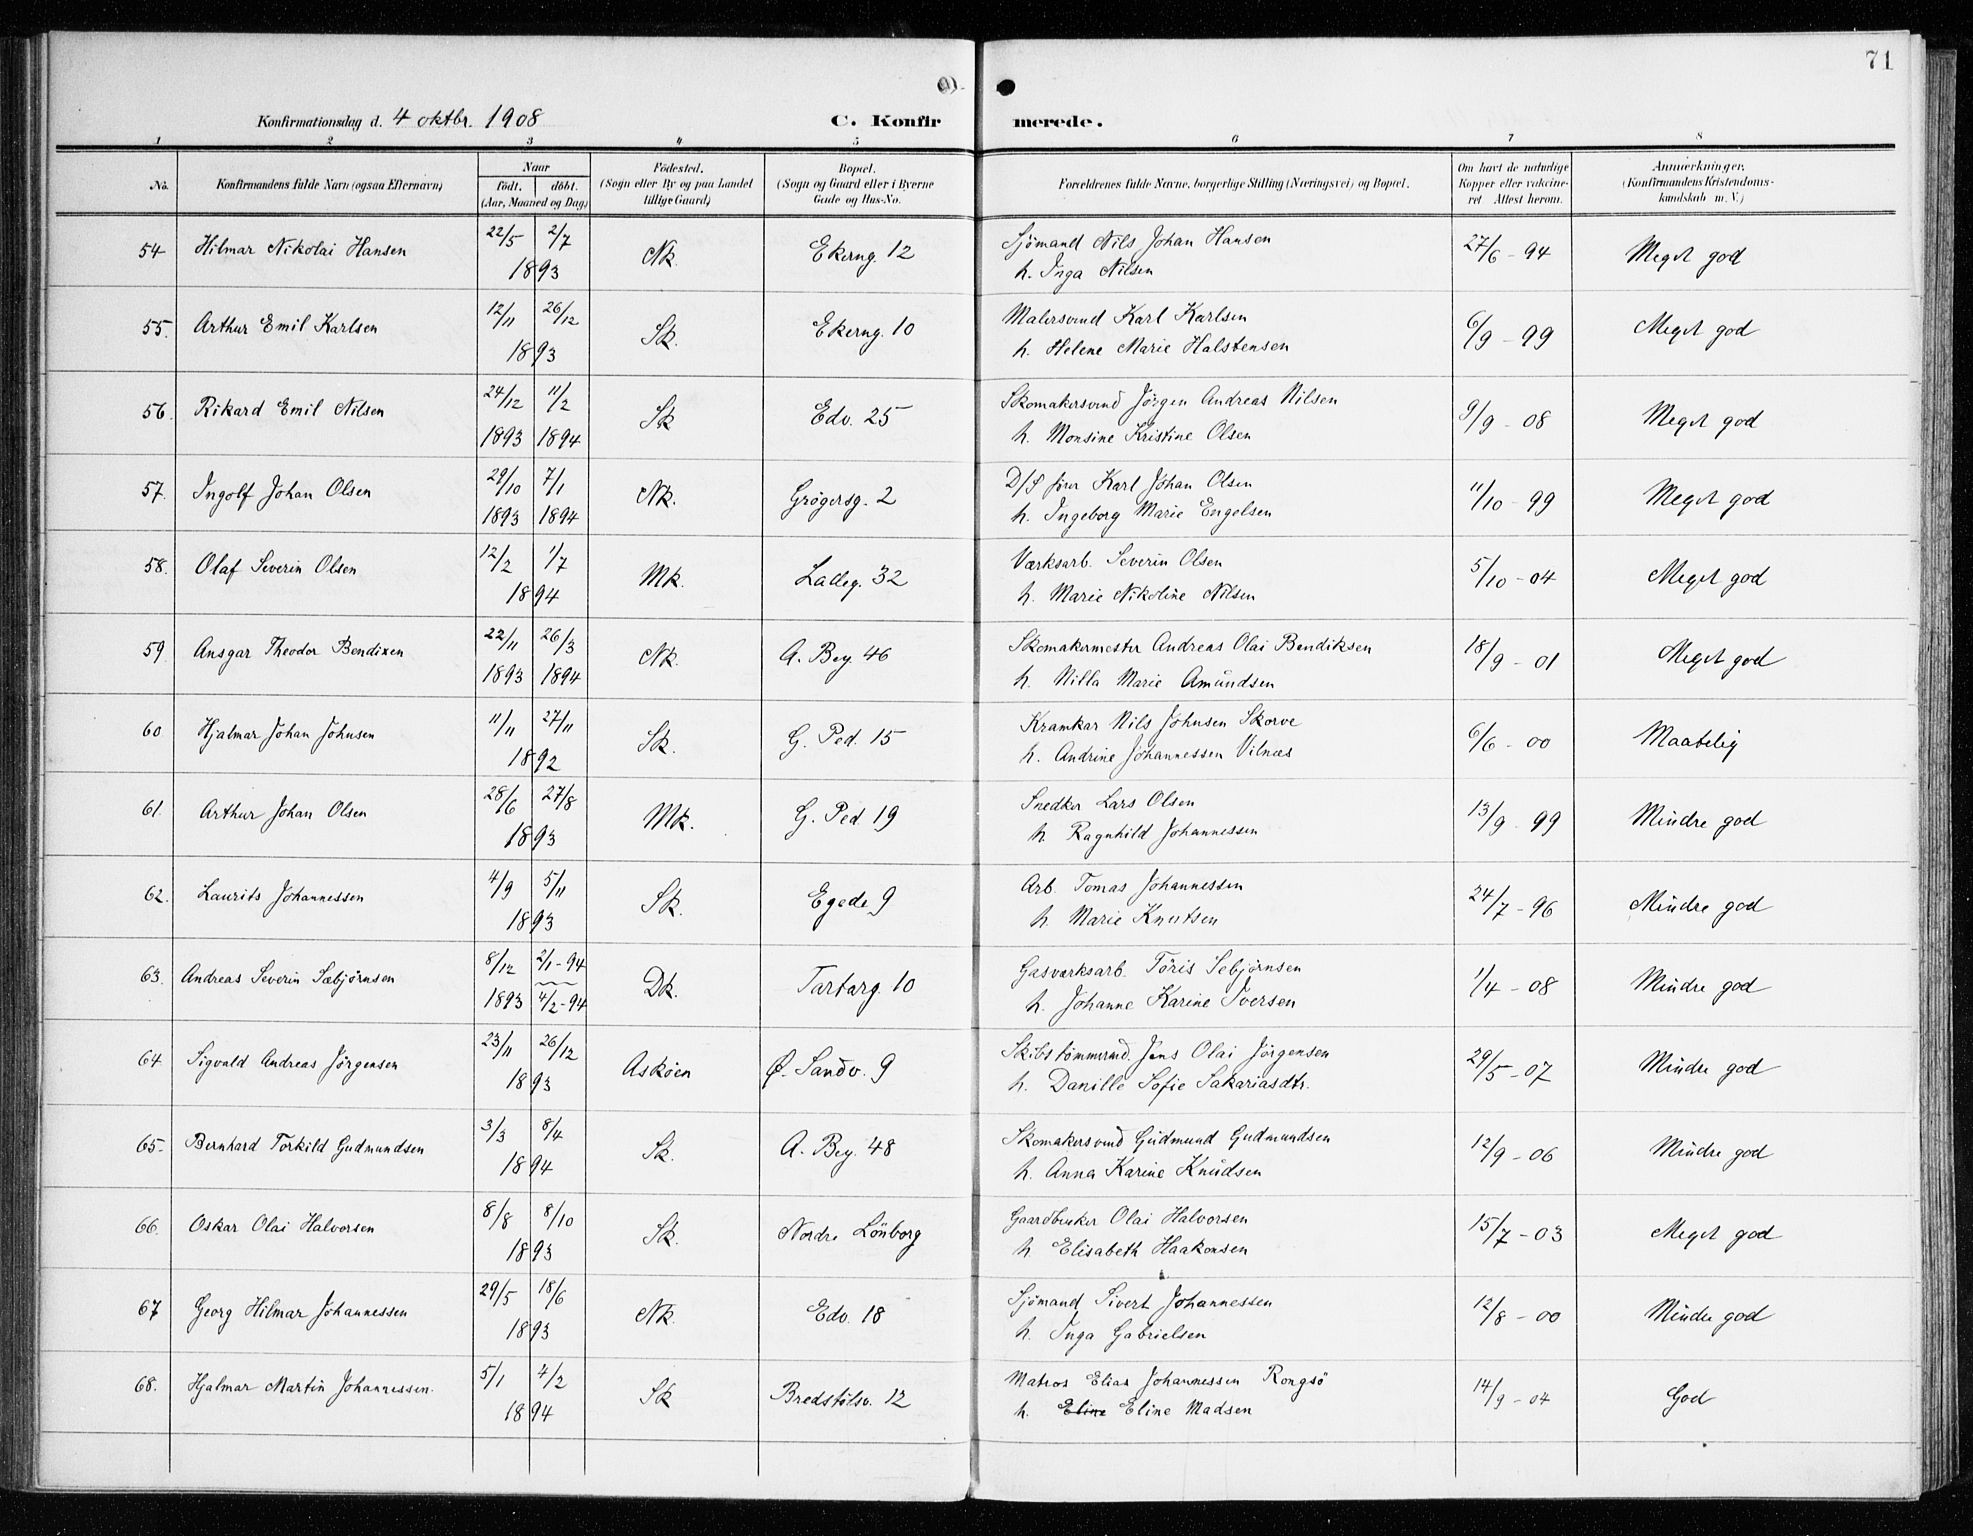 71
Konfirmationsdag d. 4 oktbr. 1908 C. Konfirmerede.
1 2 3 4 5 6 7 8
No. Konfirmandens fulde Navn (ogsaa Efternavn) Naar født. døbt. (Aar, Maaned og Dag) Fødested. (Sogn eller By og paa Landet tillige Gaard) Bopæl. (Sogn og Gaard eller i Byerne Gade og Hus-No. Forældrenes fulde Navne, borgerlige Stilling (Næringsvei) og Bopæl. Om havt de naturlige Kopper eller vakcineret. Attest herom. Anmærkninger. (Konfirmandens Kristendomskundskab m. V.)
54 Hilmar Nikolai Hansen 22/5 2/7 1893 Nk. Ekerng. 12 Sjömand Nils Johan Hansen 27/6 - 94 Meget god
h. Inga Nilsen
55. Arthur Emil Karlsen 12/11 26/12 1893 Sk. Ekerng. 10 Malersvend Karl Karlsen 6/9 - 99 Meget god
h. Helene Marie Halstensen
56. Rikard Emil Nilsen 24/12 1893 11/2 1894 Sk Edv. 25 Skomakersvend Jörgen Andreas Nilsen 9/9 - 08 Meget god
h. Monsine Kristine Olsen
57. Ingolf Johan Olsen 29/10 1893 7/1 1894 Nk. Grøgersg. 2 D/S förer Karl Johan Olsen 11/10 - 99 Meget god
h. Ingeborg Marie Engelsen
58. Olaf Severin Olsen 12/2 1/7 1894 Mk. Ladeg. 32 Værksarb. Severin Olsen 5/10 - 04 Meget god
h. Marie Nikoline Nilsen
59 Ansgar Theodor Bendixen 22/11 1893 26/3 1894 Nk. A. Bey. 46 Skomakermester Andreas Olai Bendiksen 18/9 - 01 Meget god
h. Nilla Marie Amundsen
60 Hjalmar Johan Johnsen 11/11 27/11 1892 Sk. G. Ped. 15 Kramkar Nils Johnsen Skorve 6/6 - 00 Maatelig
h. Andrine Johannessen Vilnæs
61. Arthur Johan Olsen 28/6 27/8 1893 Mk. G. Ped 19 Snedker Lars Olsen 13/9 - 99 Mindre god
h. Ragnhild Johannessen
62. Laurits Johannessen 4/9 5/11 1893 Sk. Egede 9 Arb. Tomas Johannessen 24/7 - 96 Mindre god
h. Marie Knutsen
63. Andreas Severin Sæbjørnsen 8/12 1893 2/1 - 94 4/2 - 94 Dk. Tartarg. 10 Gasværksarb. Töris Sebjörnsen 1/4 - 08 Mindre god
h. Johanne Karine Iversen
64. Sigvald Andreas Jörgensen 23/11 26/12 1893 Askøen Ø. Sandv. 9 Skibstömmermd. Jens Olai Jörgensen 29/5 - 07 Mindre god
h. Danille Sofie Sakariasdtr.
65. Bernhard Torkild Gudmundsen 3/3 8/4 1894 Sk. A. Bey. 48 Skomakersvend Gudmund Gudmundsen 12/9 - 06 Mindre god
h. Anna Karine Knudsen
66. Oskar Olai Halvorsen 8/8 8/10 1893 Sk. Nordre Lönborg Gaardbruker Olai Halvorsen 15/7 - 03 Meget god
h Elisabeth Haakonsen
67 Georg Hilmar Johannessen 29/5 18/6 1893 Nk. Edv. 18 Sjömand Sivert Johannessen 12/8 - 00 Mindre god
h. Inga Gabrielsen
68. Hjalmar Martin Johannessen. 5/1 4/2 1894 Sk Bredstølsv. 12 Matros Elias Johannessen Rongsö 14/9 - 04 God
h. Eline Eline Madsen